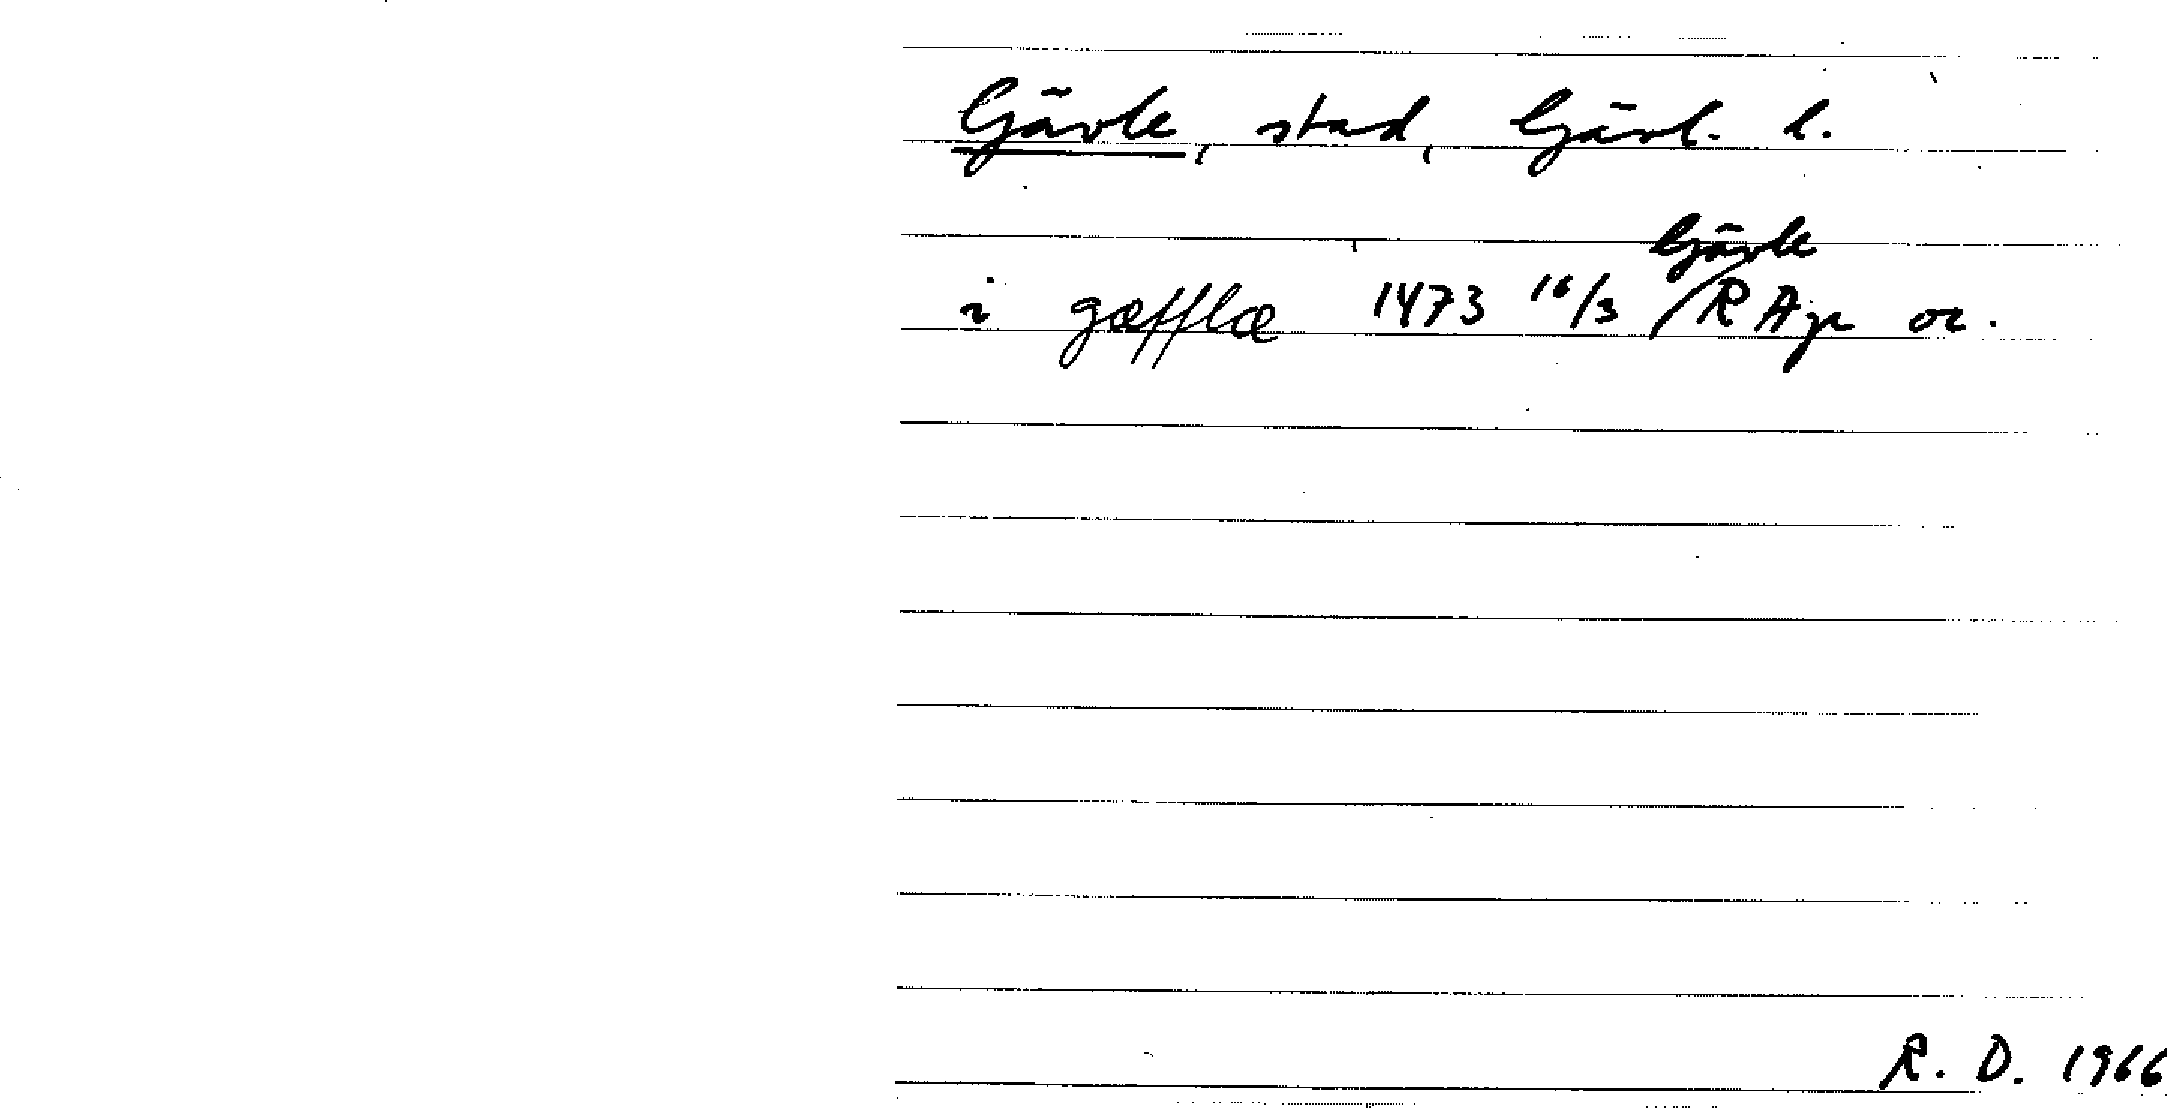 Gävle, stad, Gävl. l.
Gävle
i gæfflæ 1473 16/3 / RAp or.
R. D. 1966